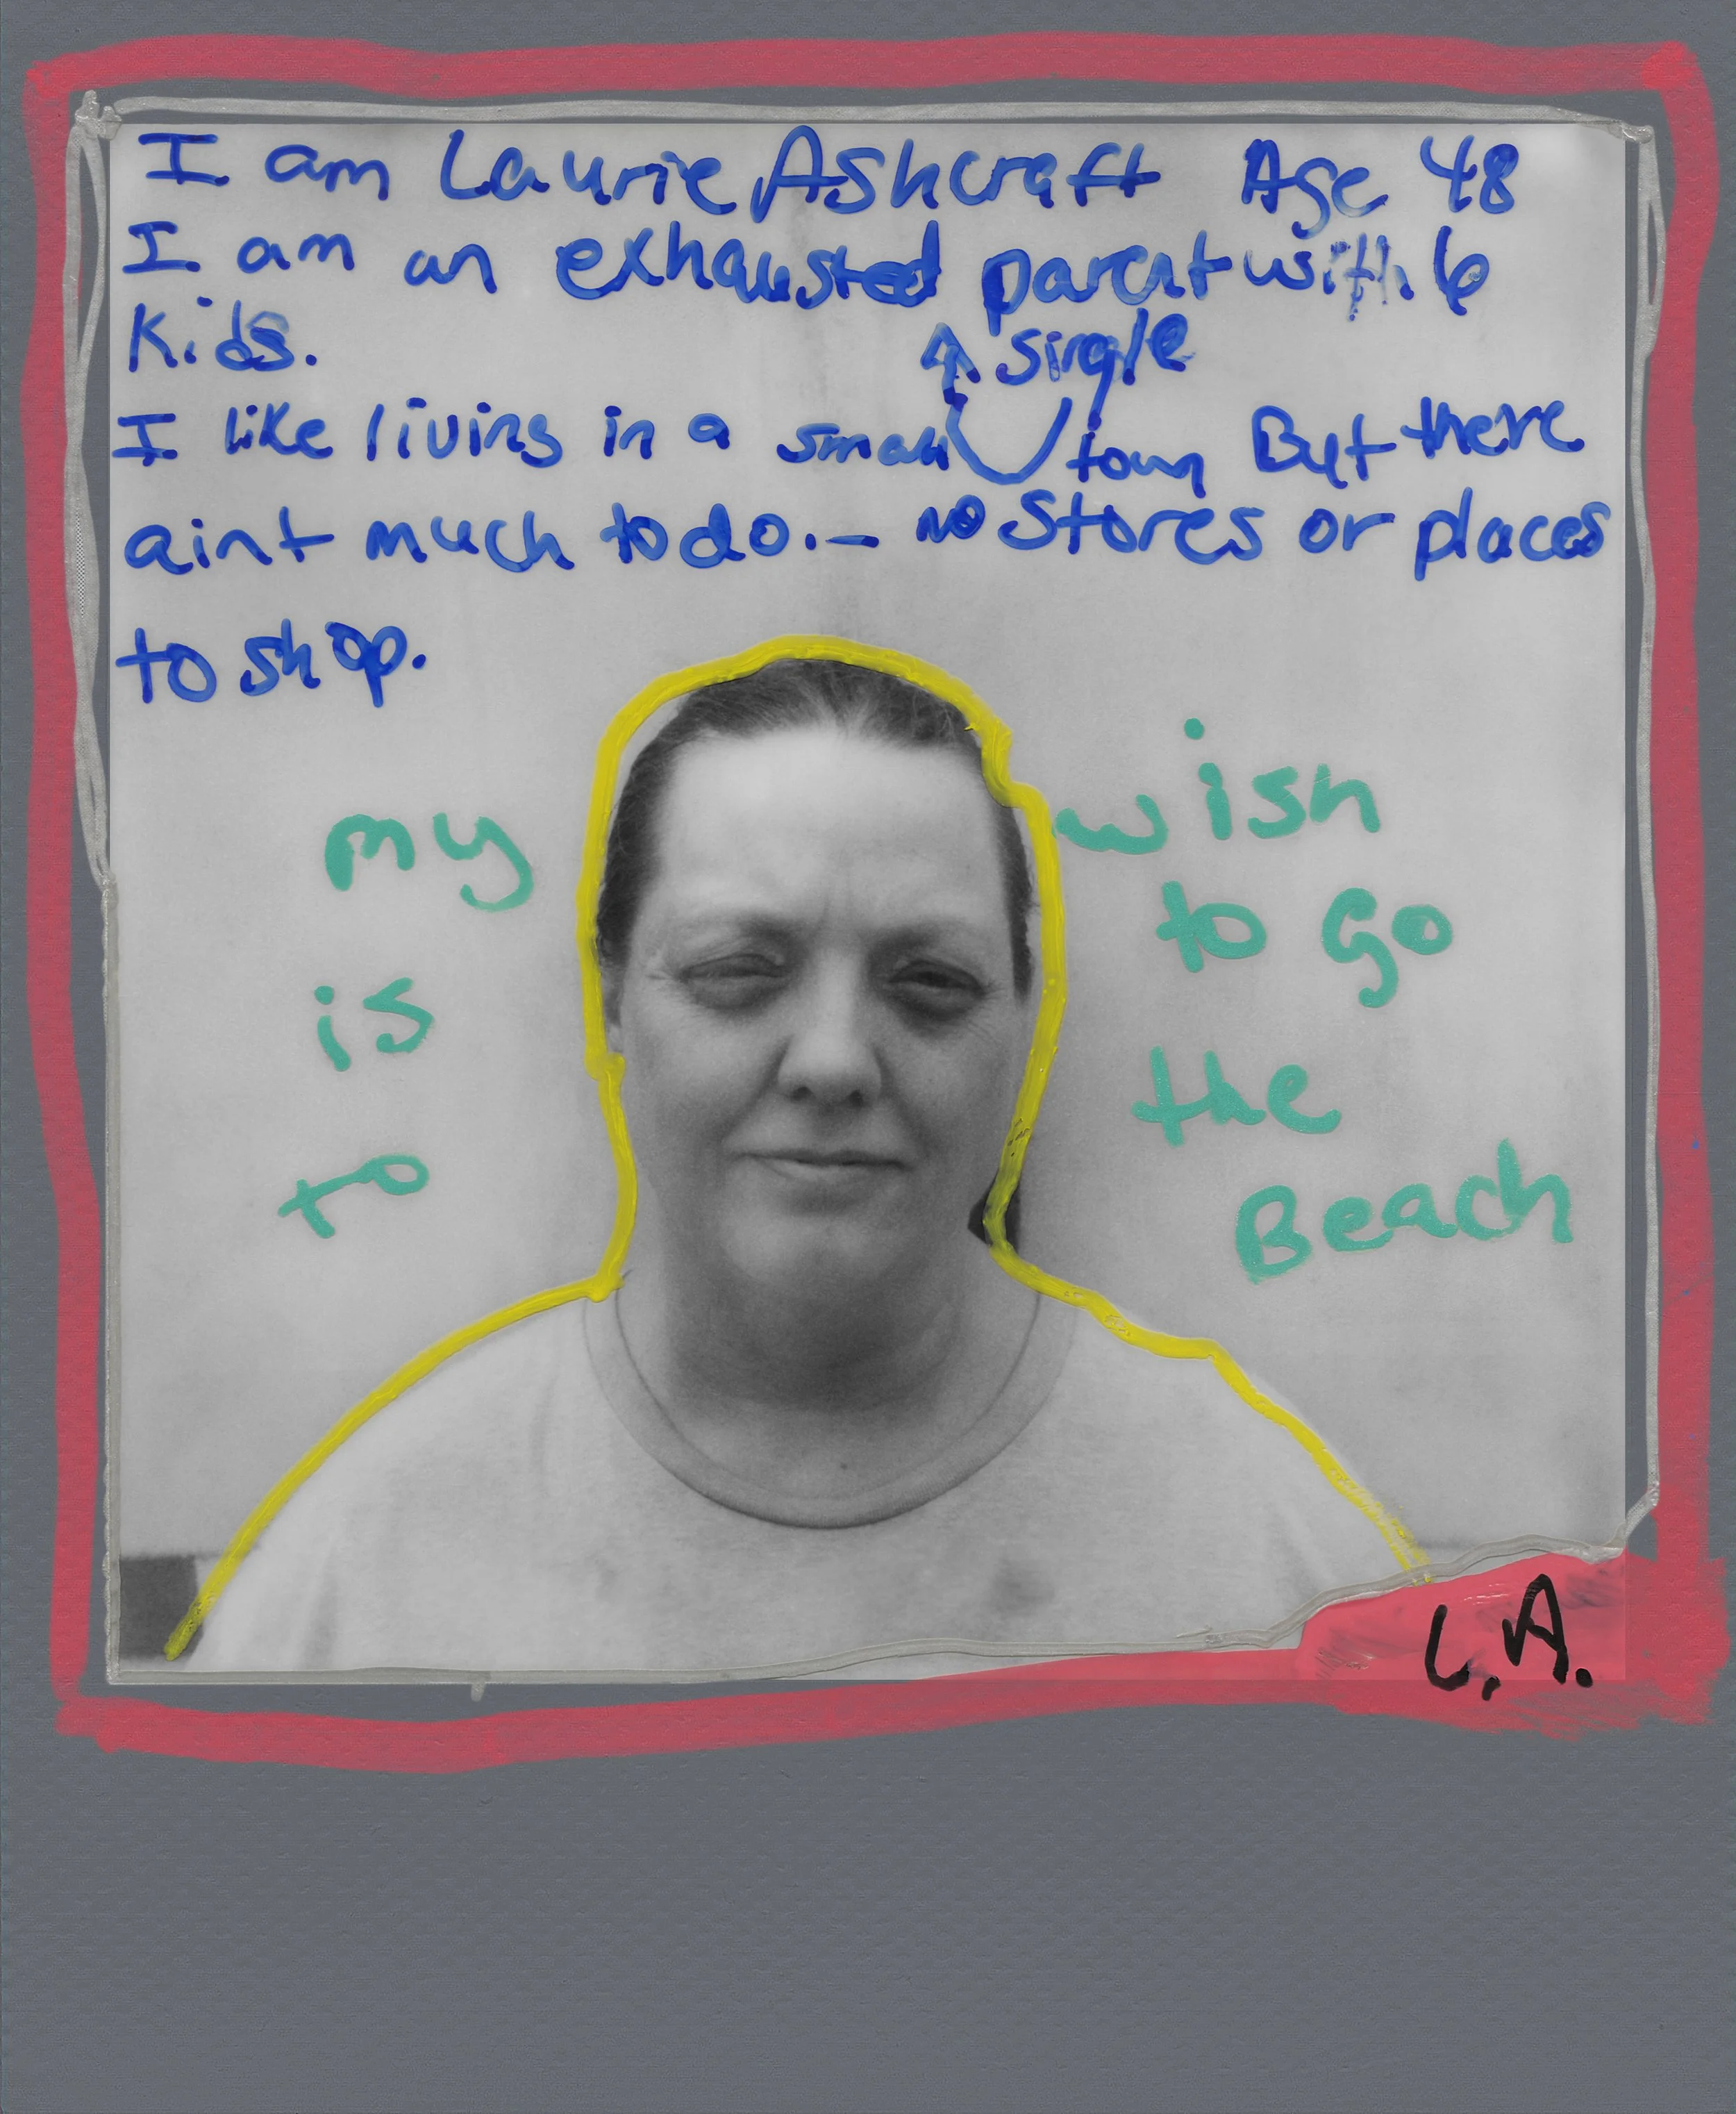 I am Laurie Ashcraft Age 48
I am an exhausted parent with 6
Kids.
single
I like living in a small town But there
aint much to do. - no stores or places
to shop.
my wish
is to go
to the
Beach
L.A.